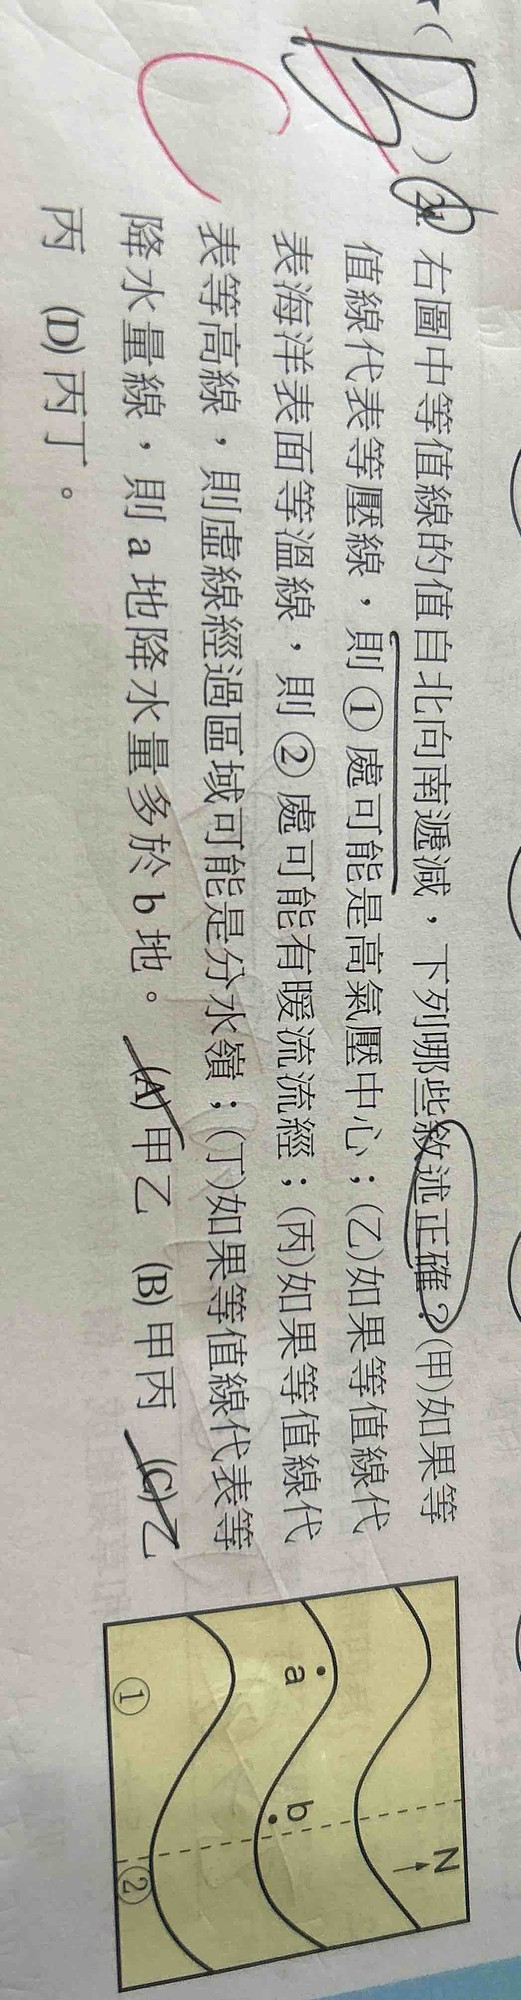 ★( B ) 21. 右圖中等值線的值自北向南遞減，下列哪些敘述正確？(甲)如果等
C 值線代表等壓線，則①處可能是高氣壓中心；(乙)如果等值線代
表海洋表面等溫線，則②處可能有暖流流經；(丙)如果等值線代
表等高線，則虛線經過區域可能是分水嶺；(丁)如果等值線代表等
降水量線，則 a 地降水量多於 b 地。 (A)甲乙 (B)甲丙 (C)乙
丙 (D)丙丁。
N
a
b
①
②